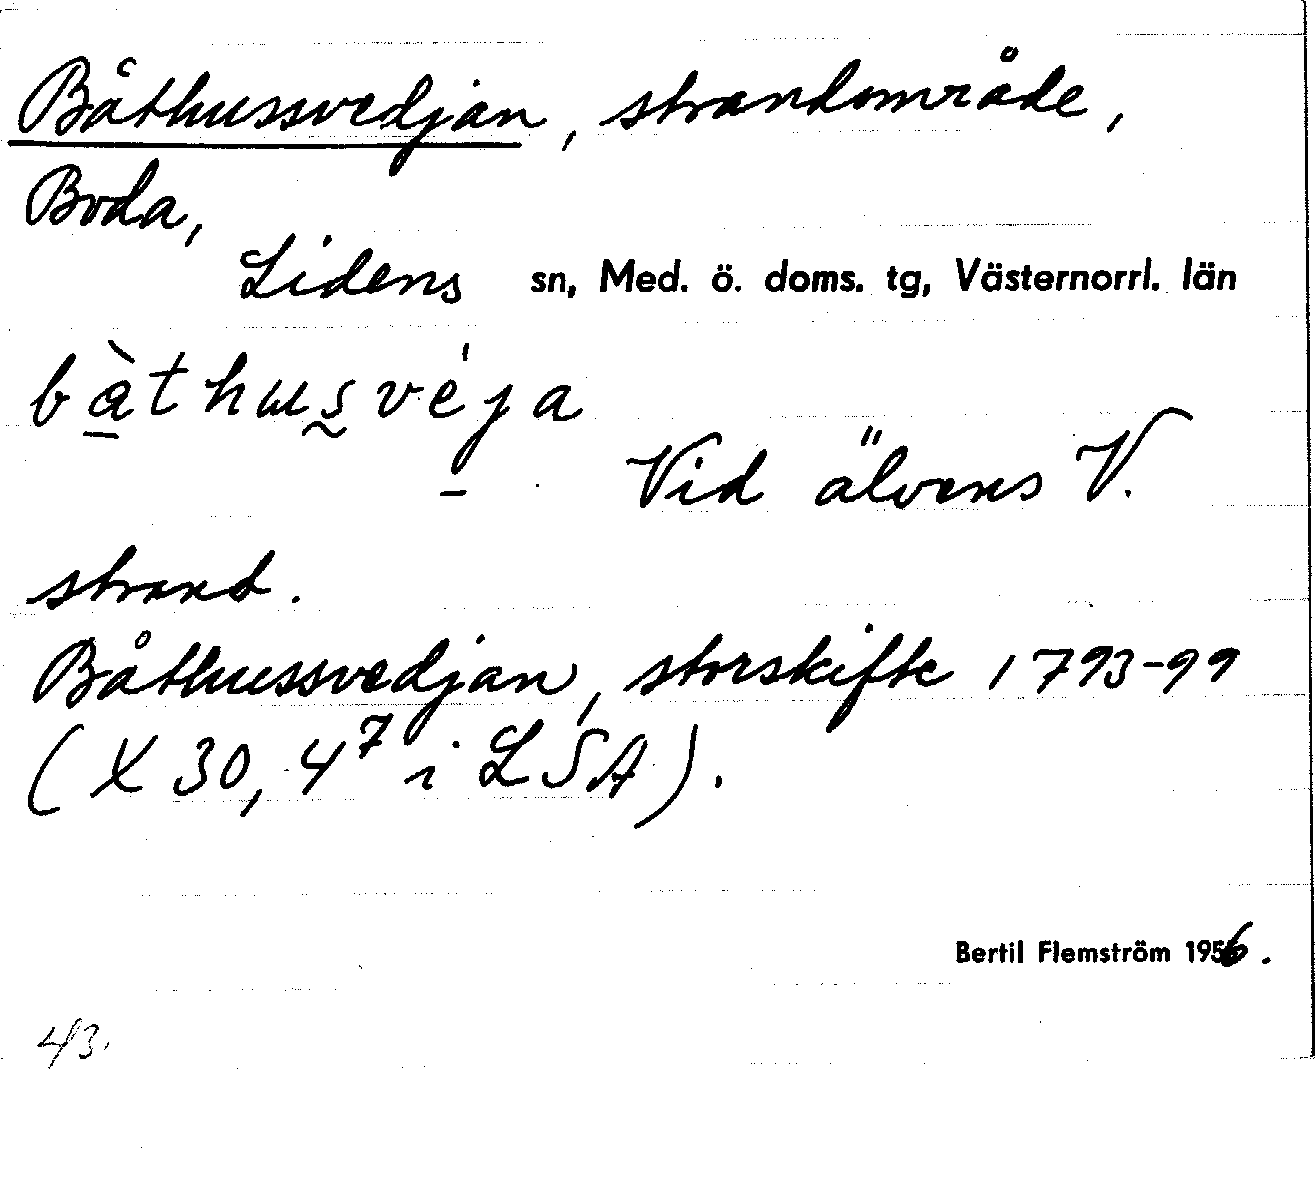 Båthussvedjan, strandområde,
Boda,
Lidens sn, Med. ö. doms. tg, Västernorrl. län
bàthusvéja
Vid älvens V.
strand.
Båthussvedjan, storskifte 1793-99
(X 30, 4⁷ i LSA).
Bertil Flemström 1956.
4/3.